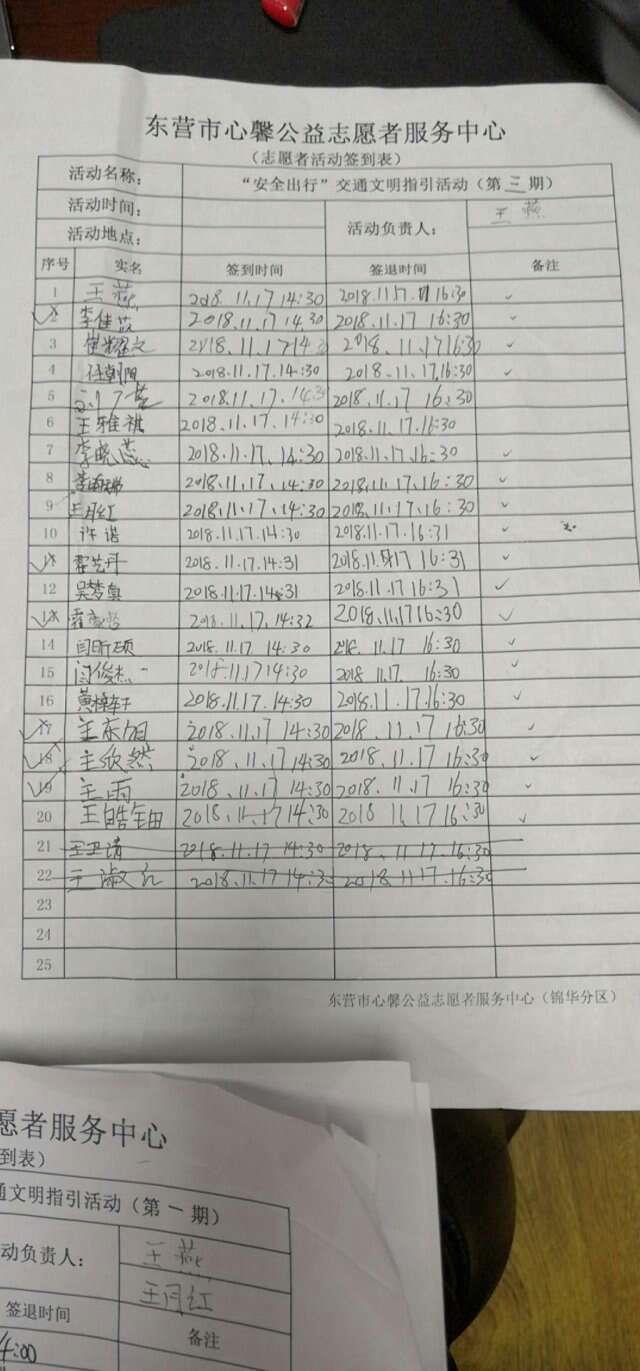 东营市心馨公益志愿者服务中心
（志愿者活动签到表）
活动名称： “安全出行”交通文明指引活动（第三期）
活动时间： 活动负责人： 王燕
活动地点：
序号 实名 签到时间 签退时间 备注
1 王燕 2018.11.17 14:30 2018.11.17 16:30 ✓
2 李佳芸 2018.11.17 14:30 2018.11.17 16:30 ✓
3 2018.11.17 14:3 2018.11.17 16:30 ✓
4 任朝阳 2018.11.17.14:30 2018.11.17.16:30 ✓
5 2018.11.17.14:30 2018.11.17 16:30
6 王雅祺 2018.11.17.14:30 2018.11.17.16:30
7 李晓蕊 2018.11.17.14:30 2018.11.17.16:30 ✓
8 2018.11.17.14:30 2018.11.17.16:30 ✓
9 王月红 2018.11.17.14:30 2018.11.17.16:30 ✓
10 许诺 2018.11.17.14:30 2018.11.17.16:31 ✓
2018.11.17.14:31 2018.11.17 16:31 ✓
12 吴梦真 2018.11.17.14:31 2018.11.17 16:31 ✓
2018.11.17.14:32 2018.11.17 16:30 ✓
14 闫昕硕 2018.11.17 14:30 2018.11.17 16:30 ✓
15 闫俊杰 2018.11.17 14:30 2018.11.17. 16:30 ✓
16 黄梓轩 2018.11.17 14:30 2018.11.17.16:30 ✓
17 王东旭 2018.11.17 14:30 2018.11.17 16:30 ✓
18 王欣然 2018.11.17 14:30 2018.11.17 16:30 ✓
19 王雨 2018.11.17 14:30 2018.11.17 16:30 ✓
20 王皓钿 2018.11.17 14:30 2018 11.17 16:30 ✓
21 王卫清 2018.11.17 14:30 2018.11.17.16:30
22 王淑红 2018.11.17 14:30 2018.11.17.16:30
23
24
25
东营市心馨公益志愿者服务中心（锦华分区）
愿者服务中心
到表）
通文明指引活动（第一期）
动负责人： 王燕
王月红
签退时间 备注
4:00